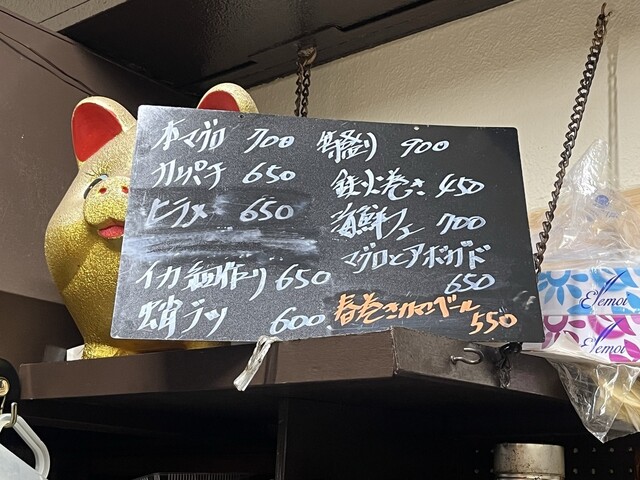 本マグロ 700
カンパチ 650
ヒラメ 650
イカ細作り 650
蛸ブツ 600
盛り 900
鉄火巻き 450
海鮮フェ 700
マグロとアボガド
650
春巻き カマンベール
550
Elemoi
Elemoi